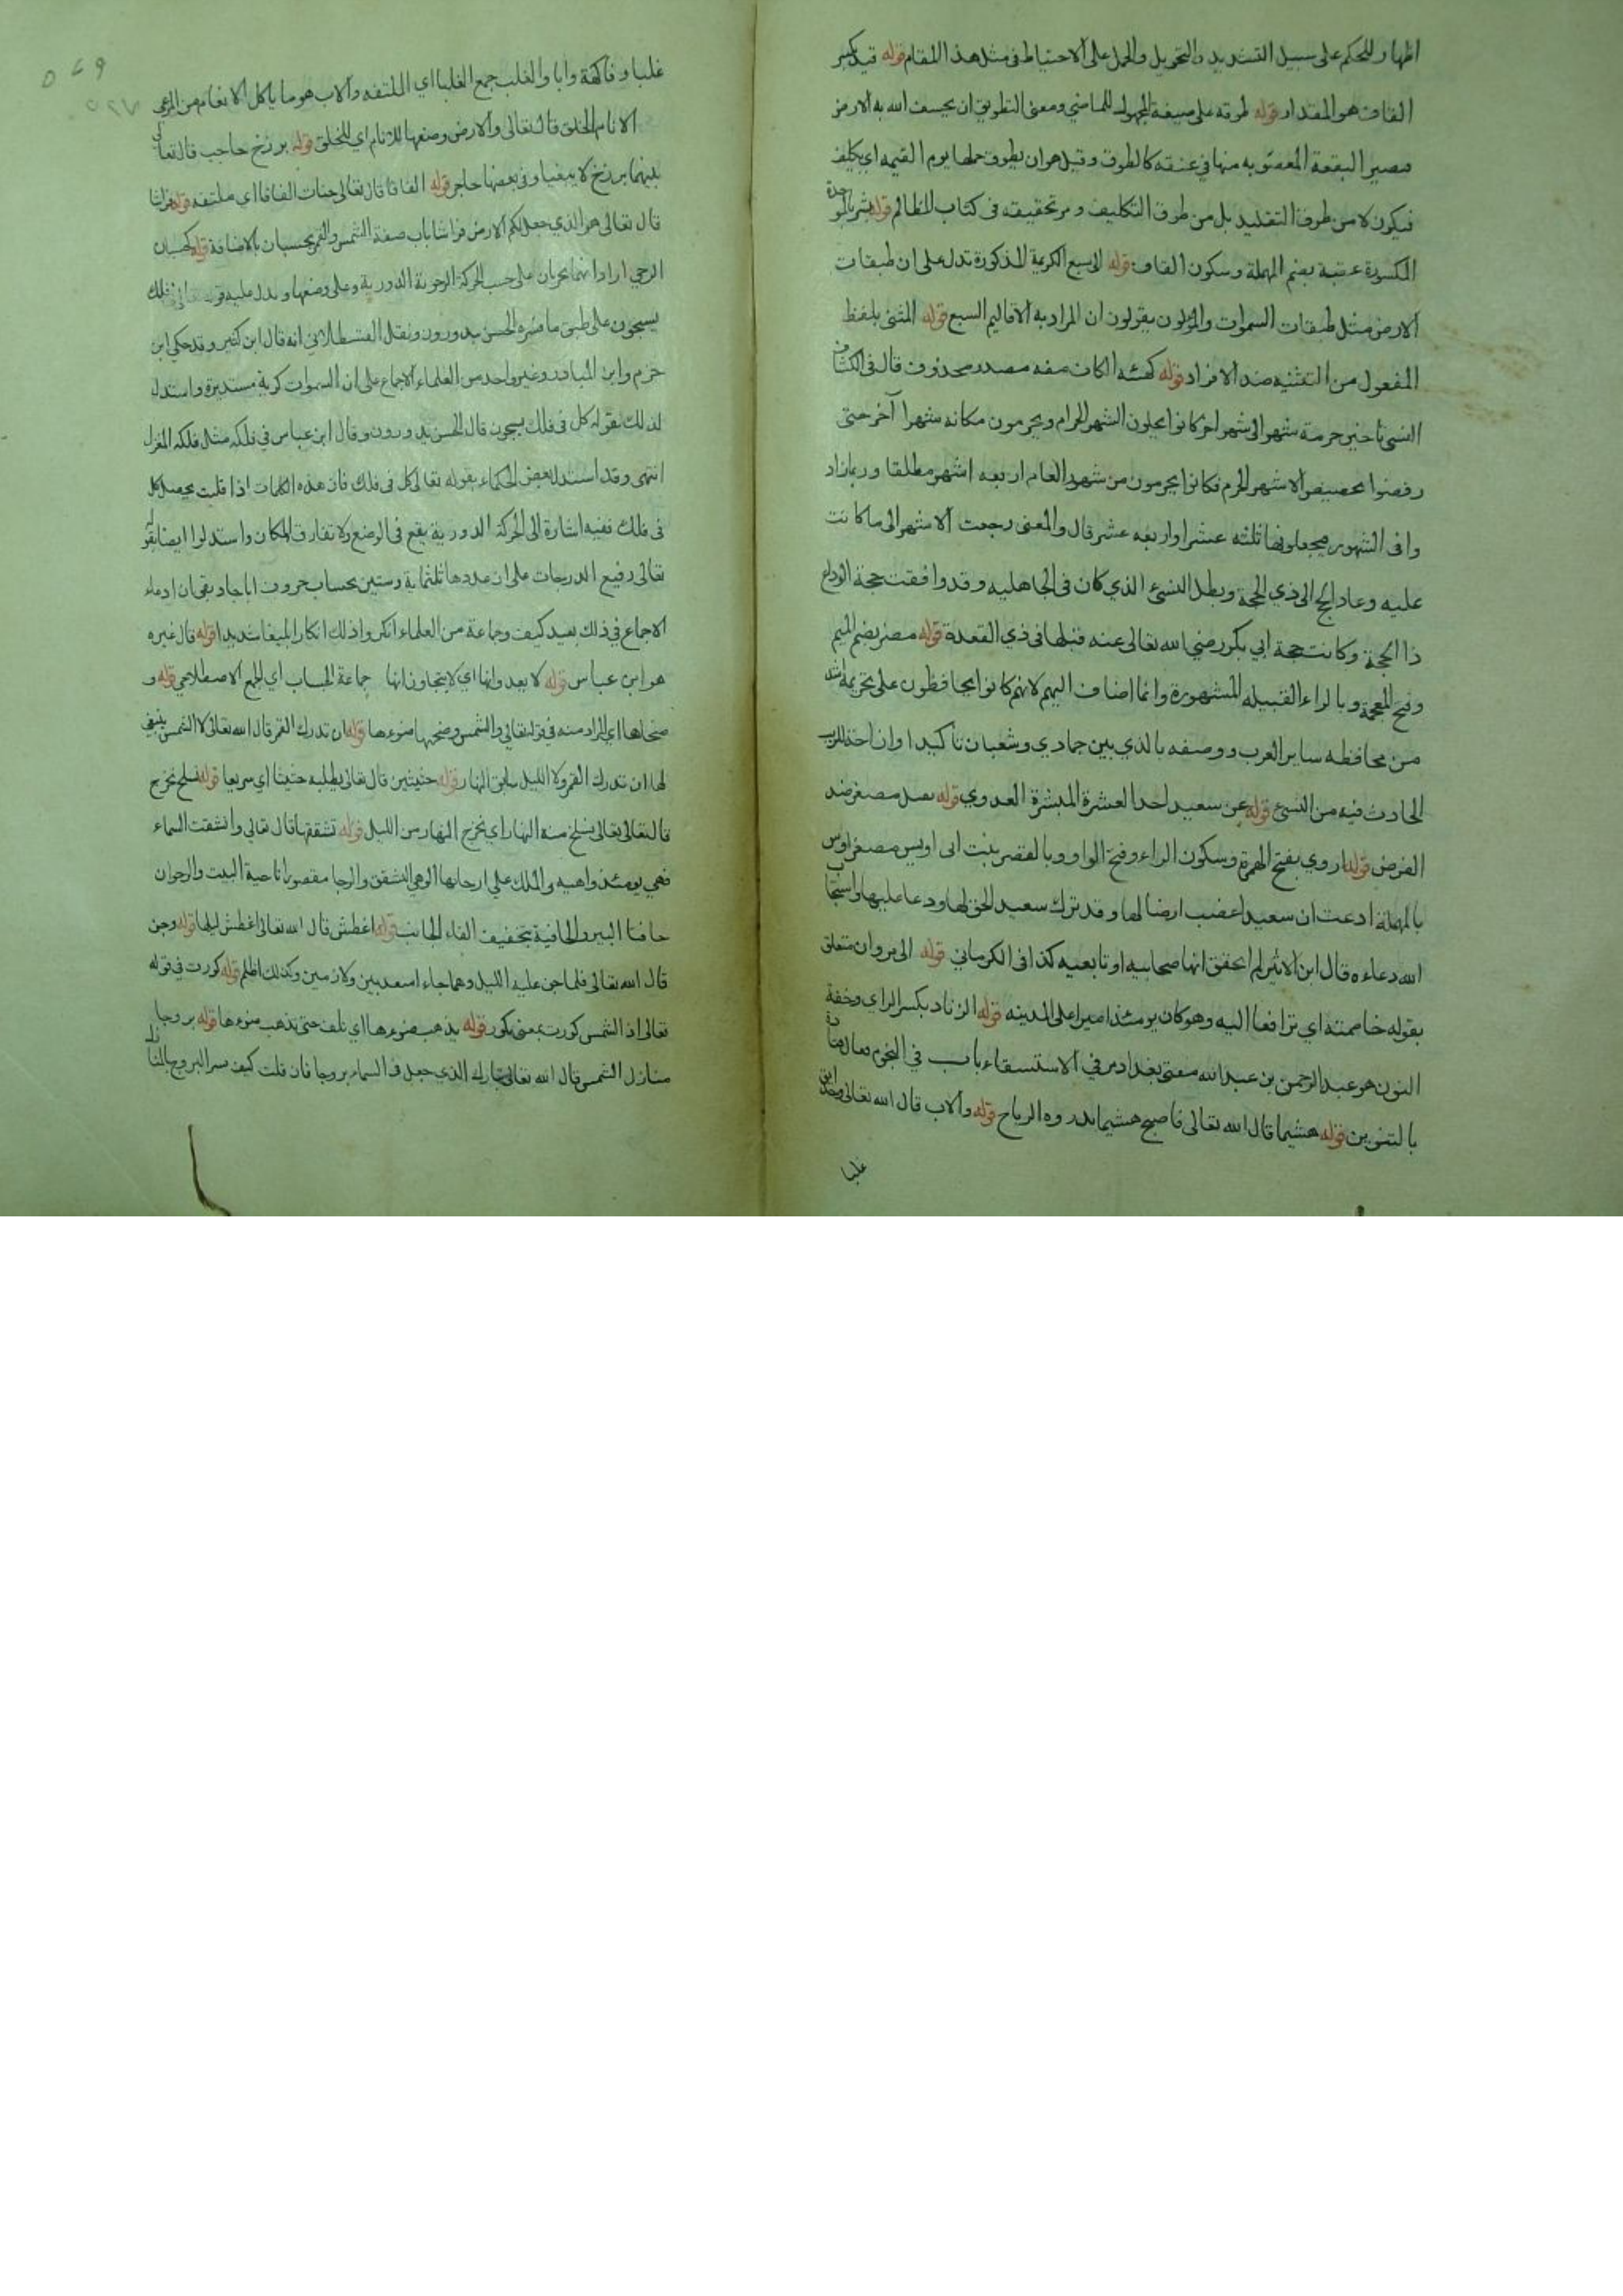 اظهار للحكم على سبيل التشديد والتحويل والحمل على الاحتياط في مثل هذا المقام قوله قيد بكسر
القاف هو المقدار قوله طوقه على صيغة المجهول للماضي ومعنى التطويق ان يخسف الله به الارض
فتصير البقعة المغصوبه منها في عنقه كالطوق وقيل هو ان يطوق حملها يوم القيمه اي يكلف
فيكون لا من طوق التقليد بل من طوق التكليف ومر تحقيقه في كتاب المظالم قوله بشر بالموحدة
المكسورة عقبة بضم المهملة وسكون القاف قوله السبع الكريمة المذكورة تدل على ان طبقات
الارض مثل طبقات السموات والمؤلون يقولون ان المراد به الاقاليم السبع قوله المثنى بلفظ
المفعول من التثنيه ضد الافراد قوله كهيئه الكاف صفه مصدر محذوف قال في الكشاف
النسئ تاخير حرمة شهر الى شهر اخر كانوا يحلون الشهر الحرام ويحرمون مكانه شهرا آخر حتى
رفضوا تخصيص الاشهر الحرم فكانوا يحرمون من شهور العام اربعه اشهر مطلقا وربما زاد
وا في الشهور فيجعلونها ثلثه عشر او اربعه عشر قال والمعنى رجعت الاشهر الى ما كانت
عليه وعاد الحج الى ذي الحجة وبطل النسئ الذي كان في الجاهليه وقد وافقت حجة الوداع
ذا الحجة وكانت حجة ابي بكر رضي الله تعالى عنه قبلها في ذي القعدة قوله مضر بضم الميم
وفتح المعجمة وبالراء القبيله المشهورة وانما اضاف اليهم لانهم كانوا يحافظون على تحريمه اشد
من محافظه ساير العرب ووصفه بالذي بين جمادي وشعبان تاكيدا وازاحة للريب
الحادث فيه من النسئ قوله عن سعيد احد العشرة المبشرة العدوي قوله نفيل مصغر ضد
الفرض قوله اروي بفتح الهمزة وسكون الراء وفتح الواو وبالقصر بنت ابي اويس مصغر اوس
بالمهملة ادعت ان سعيد اغضب ارضا لها وقد ترك سعيد الحق لها ودعا عليها واستجاب
الله دعاءه قال ابن الاثير لم اتحقق انها صحابيه او تابعيه كذا في الكرماني قوله الى مروان متعلق
بقوله خاصمته اي ترافعا اليه وهو كان يومئذ اميرا على المدينه قوله الزناد بكسر الزاي وخفة
النون هو عبد الرحمن بن عبد الله مفتى بغداد مر في الاستسقاء باب في النجوم وقال قتادة
بالتنوين قوله هشيما قال الله تعالى فاصبح هشيما تذروه الرياح قوله والاب قال الله تعالى وحدائق
غلبا
غلبا وفاكهة وابا والغلب جمع الغلبا اي الملتفه والاب هو ما ياكل الانعام من المرعى
الانام الخلق قال تعالى والارض وضعها للانام اي للخلق قوله برزخ حاجب قال تعالى
بينهما برزخ لا يبغيان وفي بعضها حاجز قوله الفافا قال تعالى جنات الفافا اي ملتفه قوله فراشا
قال تعالى هو الذي جعل لكم الارض فراشا باب صفة الشمس والقمر بحسبان بالاضافة قوله كحسبان
الرحي ارادا انهما يجريان على حسب الحركة الرحوية الدورية وعلى وضعها ويدل عليه قوله في فلك
يسبحون على طبق ما فسره الحسن يدورون ونقل القسطلاني انه قال ابن كثير وقد حكى ابن
حزم وابن المنادي وغير واحد من العلماء الاجماع على ان السموات كرية مستديرة واستدل
لذلك بقوله كل في فلك يسبحون قال الحسن يدورون وقال ابن عباس في فلكه مثل فلكه المغزل
انتهى وقد استدل بعض الحكماء بقوله تعالى كل في فلك فان هذه الكلمات اذا قلبت يحصل كل
في فلك ففيه اشارة الى الحركة الدورية يقع في الوضع ولا تفارق المكان واستدلوا ايضا بقوله
تعالى رفيع الدرجات على ان عددها ثلثماية وستين بحساب حروف اباجاد بقى ان ادعاء
الاجماع في ذلك بعيد كيف وجماعة من العلماء انكروا ذلك انكارا بليغا شديدا قوله قال غيره
هو ابن عباس قوله لا يعدوانها اي لا يتجاوزانها جماعة الحساب اي الجمع الاصطلاحي قوله و
ضحاها اي المراد منه في قوله تعالى والشمس وضحيها ضوءها قوله ان تدرك القمر قال الله تعالى لا الشمس ينبغي
لها ان تدرك القمر ولا الليل سابق النهار قوله حثيثين قال تعالى يطلبه حثيثا اي سريعا قوله نسلخ نخرج
قال تعالى نسلخ منه النهار اي نخرج النهار من الليل قوله تشققها قال تعالى وانشقت السماء
فهي يومئذ واهيه والملك على ارجائها الوهي التشقق والرجا مقصورا ناحية البيت والرجوان
حافتا البير والحافية بتخفيف الفاء الجانب قوله اغطش قال الله تعالى اغطش ليلها قوله وجن
قال الله تعالى فلما جن عليه الليل وهما جاءا متعديين ولازمين وكذلك اظلم قوله كورت في قوله
تعالى اذا الشمس كورت بمعنى تكور قوله يذهب ضوءها اي تلف حتى يذهب ضوءها قوله بروجا
منازل الشمس قال الله تعالى تبارك الذي جعل في السماء بروجا فان قلت كيف فسر البروج بالمنازل